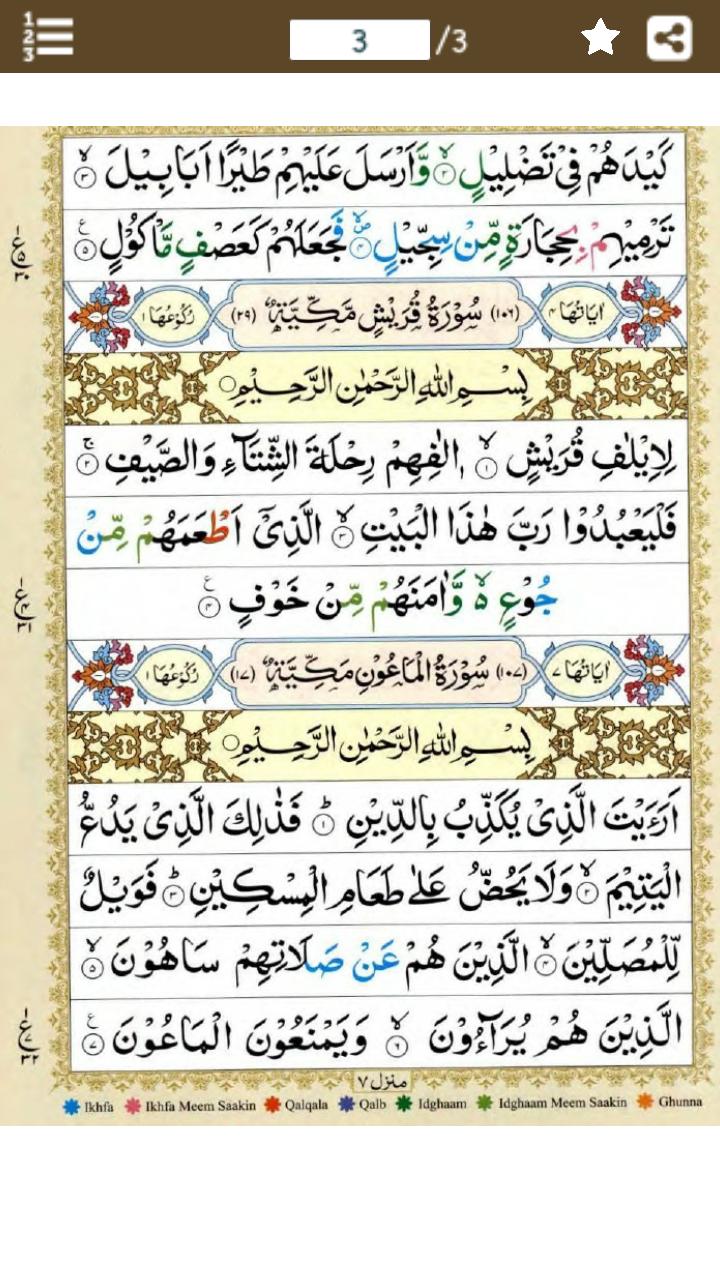 1
2
3
3 /3
كَيْدَهُمْ فِيْ تَضْلِيْلٍ ۙ‏﴿۲﴾ وَّاَرْسَلَ عَلَيْهِمْ طَيْرًا اَبَابِيْلَ ۙ‏﴿۳﴾
تَرْمِيْهِمْ بِحِجَارَةٍ مِّنْ سِجِّيْلٍ ۪ۙ‏﴿۴﴾ فَجَعَلَهُمْ كَعَصْفٍ مَّاْكُوْلٍ ﴿۵﴾ع
ع ۵ ۳۰
اٰيَاتُهَا ۴ (۱۰۶) سُوْرَةُ قُرَيْشٍ مَّكِّيَّةٌ (۲۹) رُكُوْعُهَا ۱
بِسْمِ اللهِ الرَّحْمٰنِ الرَّحِيْمِ
لِاِيْلٰفِ قُرَيْشٍ ۙ‏﴿۱﴾ اٖلٰفِهِمْ رِحْلَةَ الشِّتَآءِ وَالصَّيْفِ ۚ‏﴿۲﴾
فَلْيَعْبُدُوْا رَبَّ هٰذَا الْبَيْتِ ۙ‏﴿۳﴾ الَّذِيْٓ اَطْعَمَهُمْ مِّنْ
جُوْعٍ ۙ۬ وَّاٰمَنَهُمْ مِّنْ خَوْفٍ ﴿۴﴾ع
ع ۴ ۳۱
اٰيَاتُهَا ۷ (۱۰۷) سُوْرَةُ الْمَاعُوْنِ مَكِّيَّةٌ (۱۷) رُكُوْعُهَا ۱
بِسْمِ اللهِ الرَّحْمٰنِ الرَّحِيْمِ
اَرَءَيْتَ الَّذِيْ يُكَذِّبُ بِالدِّيْنِ ؕ‏﴿۱﴾ فَذٰلِكَ الَّذِيْ يَدُعُّ
الْيَتِيْمَ ۙ‏﴿۲﴾ وَلَا يَحُضُّ عَلٰى طَعَامِ الْمِسْكِيْنِ ؕ‏﴿۳﴾ فَوَيْلٌ
لِّلْمُصَلِّيْنَ ۙ‏﴿۴﴾ الَّذِيْنَ هُمْ عَنْ صَلَاتِهِمْ سَاهُوْنَ ۙ‏﴿۵﴾
الَّذِيْنَ هُمْ يُرَآءُوْنَ ۙ‏﴿۶﴾ وَيَمْنَعُوْنَ الْمَاعُوْنَ ﴿۷﴾ع
ع ۷ ۳۲
منزل ۷
Ikhfa Ikhfa Meem Saakin Qalqala Qalb Idghaam Idghaam Meem Saakin Ghunna